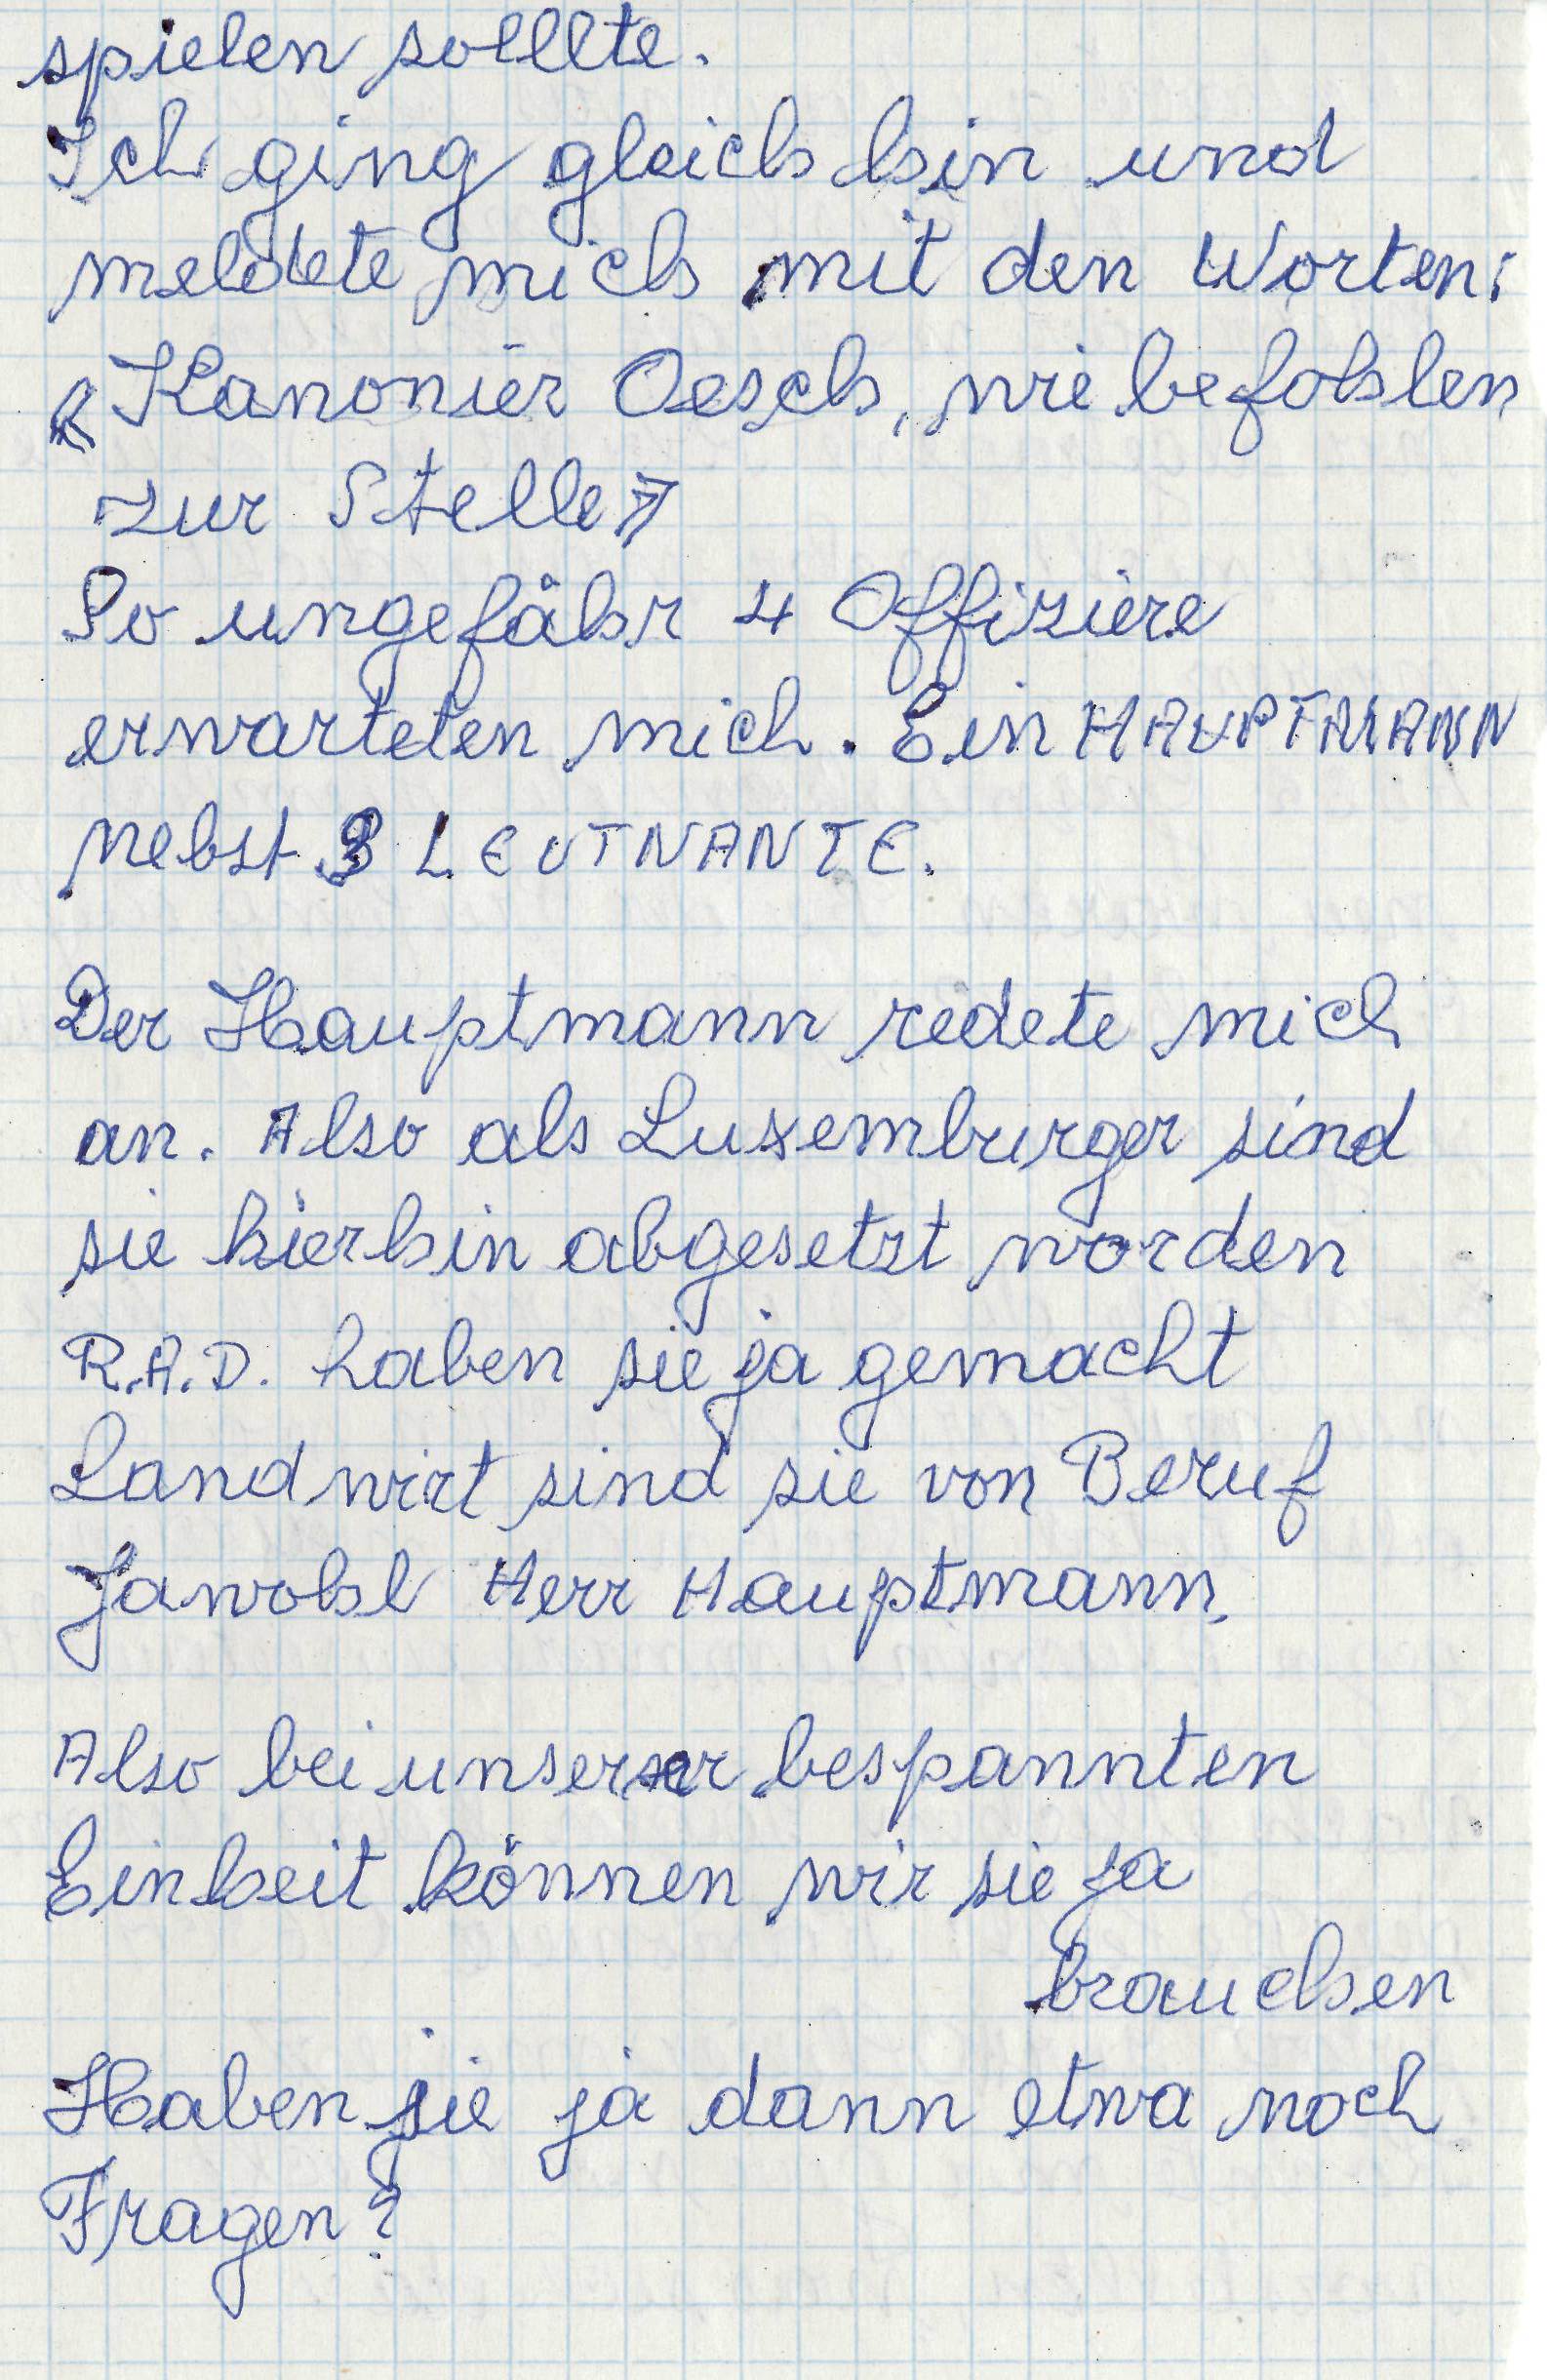 spielen sollte.
Ich ging gleich hin und
meldete mich mit den Worten:
«Kanonier Oesch, wie befohlen
zur Stelle»
So ungefähr 4 Offiziere
erwarteten mich. Ein HAUPTMANN
nebst 3 LEUTNANTE.
Der Hauptmann redete mich
an. Also als Luxemburger sind
sie hierhin abgesetzt worden
R.A.D. haben sie ja gemacht
Landwirt sind sie von Beruf
Jawohl Herr Hauptmann.
Also bei unserer bespannten
Einheit können wir sie ja
brauchen
Haben sie ja dann etwa noch
Fragen?